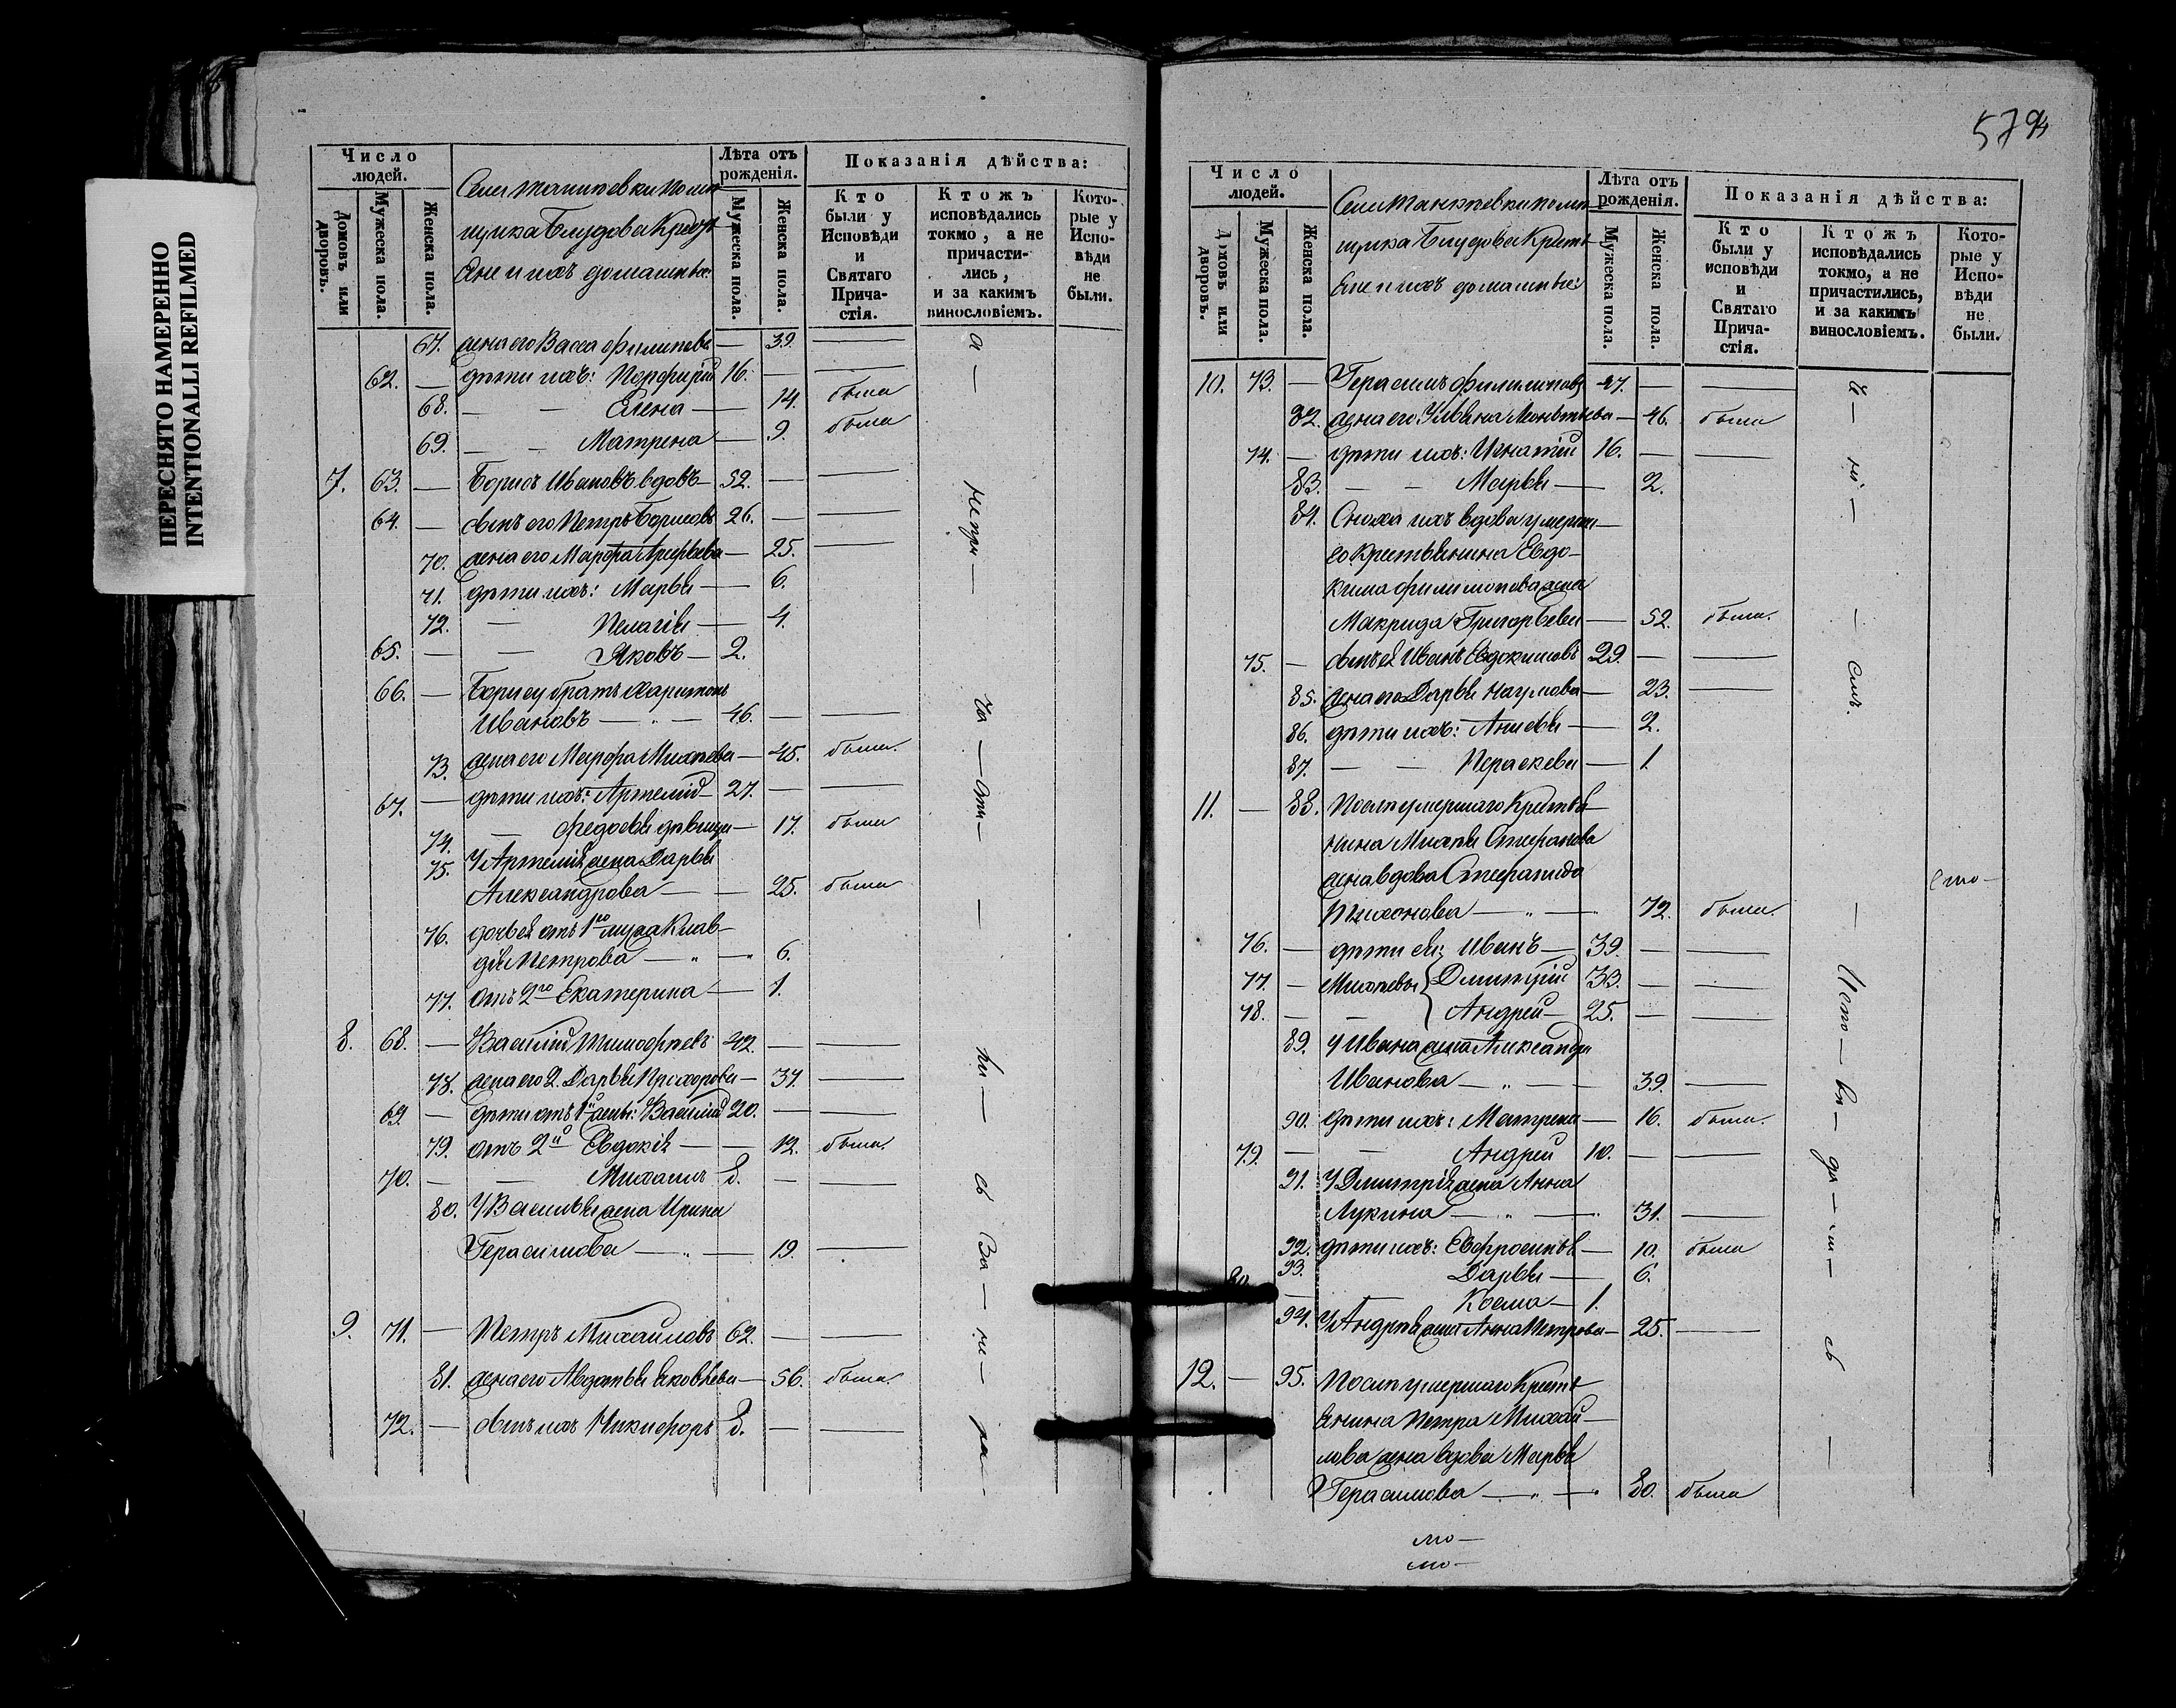 ПЕРЕСНЯТО НАМЕРЕННО
INTENTIONALLI REFILMED
Число людей.
Домовъ или дворовъ.
Мужеска пола.
Женска пола.
помѣ-
щика Блудова Крестъ-
яне и ихъ домашніе:
Лѣта отъ рожденія.
Мужеска пола.
Женска пола.
Показанія дѣйства:
Кто были у Исповѣди и Святаго Прича- стія.
Ктожъ исповѣдались токмо, а не причасти- лись, и за какимъ винословіемъ.
Кото- рые у Испо- вѣди не были.
67. жена его Васса Филипова — 39. —
62. — дѣти ихъ: Порфирій 16. — —
68. — — Елена — 14. была
69. — — Матрена — 9. была
7. 63. — Борисъ Ивановъ вдовъ 52. — —
64. — сынъ его Петръ Борисовъ 26. — —
70. жена его Марфа — 25. —
71. дѣти ихъ: Марья — 6.
72. — Пелагія — 4.
65. — — Яковъ — 2.
66. — Борису братъ Харитонъ
Ивановъ — 46. — —
73. жена его Марфа Михѣева — 45. была.
67. — дѣти ихъ: Артемій — 27. — —
74. — Федосья дѣвица — 17. была
75. У Артемія жена Дарья
Александрова — — 25. была
76. дочь ея отъ 1го мужа Клав-
дія Петрова — „ — 6.
77. отъ 2го Екатерина — 1.
8. 68. — Василій Тимофѣевъ 42. — —
78. жена его 2. Дарья Прохорова — 37. —
69. — дѣти отъ 1й жены: Василій 20. — —
79. отъ 2й Евдокія — — 12. была.
70. — — Михаилъ 8. — —
80. У Василья жена Ирина
Герасимова — „ — 19. —
9. 71. — Петръ Михайловъ 62. — —
81. жена его Авдотья Яковлева — 56. была.
72. — сынъ ихъ Никифоръ 8. — —
579
Число людей.
Домовъ или дворовъ.
Мужеска пола.
Женска пола.
помѣ-
щика Блудова Кресть-
яне и ихъ домашніе:
Лѣта отъ рожденія.
Мужеска пола.
Женска пола.
Показанія дѣйства:
Кто были у исповѣди и Святаго Прича- стія.
Ктожъ исповѣдались токмо, а не причастились, и за какимъ винословіемъ.
Кото- рые у Испо- вѣди не были.
10. 73. — Герасимъ Филимоновъ 47. — —
82. жена его Ульяна Леонтьева — 46. была
74. — дѣти ихъ: Игнатій 16. — —
83. — — Марья — 2.
84. Сноха ихъ вдова умерша-
го Крестьянина Евдо-
кима Филимонова жена
Макрида Григорьева — 52. была.
75. — сынъ ея Иванъ Евдокимовъ 29. — —
85. жена его Дарья Наумова — 23. —
86. дѣти ихъ: Анисья — 2.
87. — — Параскева — 1.
11. — 88. Послѣ умершаго Крестья-
нина Михѣя Стефанова
жена вдова Стефанида
Тихонова — „ — 72. была.
76. — дѣти ея: Иванъ — 39. — —
77. — Михѣевы Дмитрій 33. — —
78. — — Андрей — 25. — —
89. У Ивана жена Александра
Иванова — „ — 39. —
90. дѣти ихъ: Матрена — 16. была.
79. — — Андрей 10. — —
91. У Дмитрія жена Анна
Лукина — „ — 31. —
92. дѣти ихъ: Евфросинья — 10. была
93. Дарья — 6.
80. — Косма — 1.
94. У Андрея жена Анна Петрова — 25. —
12. — 95. Послѣ умершаго Кресть-
янина Петра Михай-
лова жена вдова Марья
Герасимова — „ — 80. была